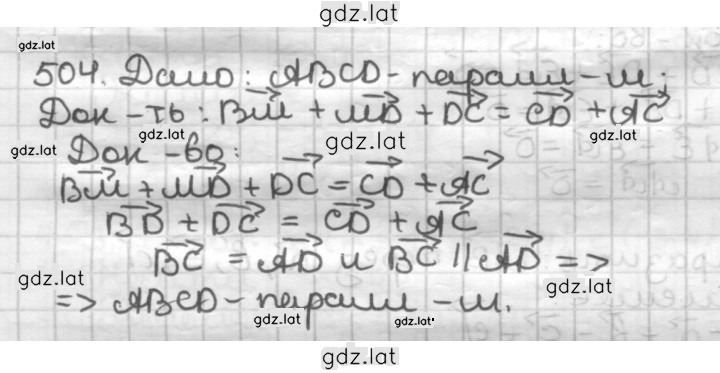 gdz.lat
gdz.lat
504. Дано: ABCD - паралл-м.
Док-ть: BM + MD + DC = CD + AC
gdz.lat gdz.lat
gdz.lat gdz.lat
Док-во:
BM + MD + DC = CD + AC
BD + DC = CD + AC
BC = AD и BC || AD =>
gdz.lat gdz.lat
=> ABCD - паралл-м.
gdz.lat gdz.lat
gdz.lat